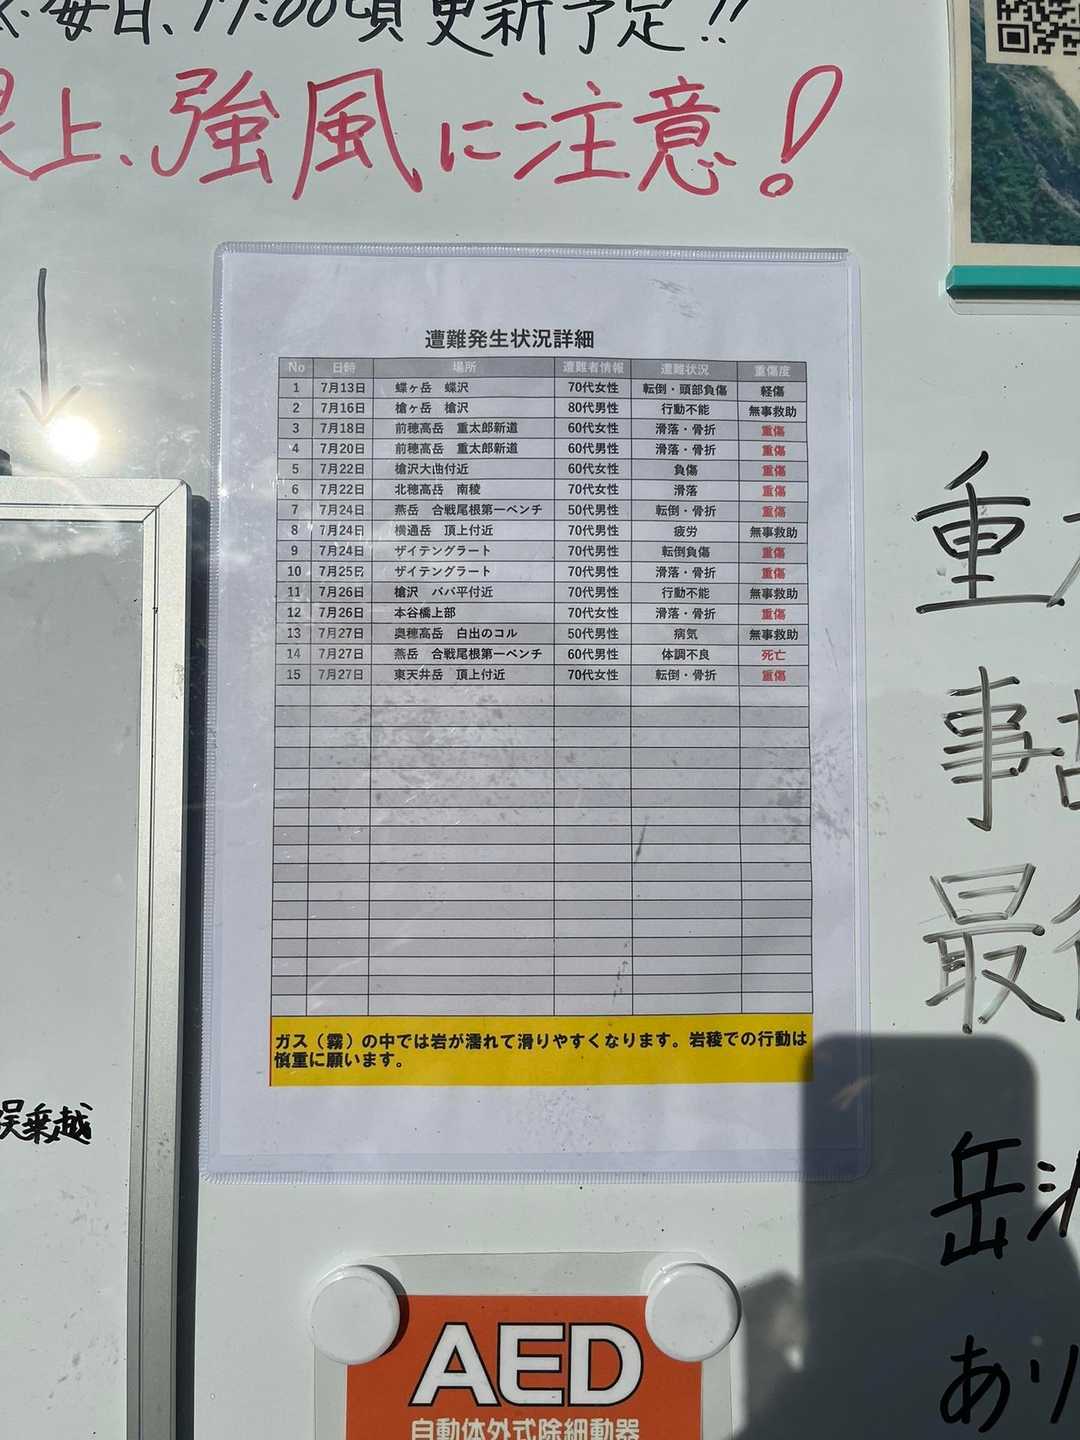 毎日、17:00頃更新予定!!
上、強風に注意!
遭難発生状況詳細
No 日時 場所 遭難者情報 遭難状況 重傷度
1 7月13日 蝶ヶ岳 蝶沢 70代女性 転倒・頭部負傷 軽傷
2 7月16日 槍ヶ岳 槍沢 80代男性 行動不能 無事救助
3 7月18日 前穂高岳 重太郎新道 60代女性 滑落・骨折 重傷
4 7月20日 前穂高岳 重太郎新道 60代男性 滑落・骨折 重傷
5 7月22日 槍沢大曲付近 60代女性 負傷 重傷
6 7月22日 北穂高岳 南稜 70代女性 滑落 重傷
7 7月24日 燕岳 合戦尾根第一ベンチ 50代男性 転倒・骨折 重傷
8 7月24日 横通岳 頂上付近 70代男性 疲労 無事救助
9 7月24日 ザイテングラート 70代男性 転倒負傷 重傷
10 7月25日 ザイテングラート 70代男性 滑落・骨折 重傷
11 7月26日 槍沢 ババ平付近 70代男性 行動不能 無事救助
12 7月26日 本谷橋上部 70代女性 滑落・骨折 重傷
13 7月27日 奥穂高岳 白出のコル 50代男性 病気 無事救助
14 7月27日 燕岳 合戦尾根第一ベンチ 60代男性 体調不良 死亡
15 7月27日 東天井岳 頂上付近 70代女性 転倒・骨折 重傷
ガス（霧）の中では岩が濡れて滑りやすくなります。岩稜での行動は
慎重に願います。
重
事故
最
岳沢
あり
俣乗越
AED
自動体外式除細動器